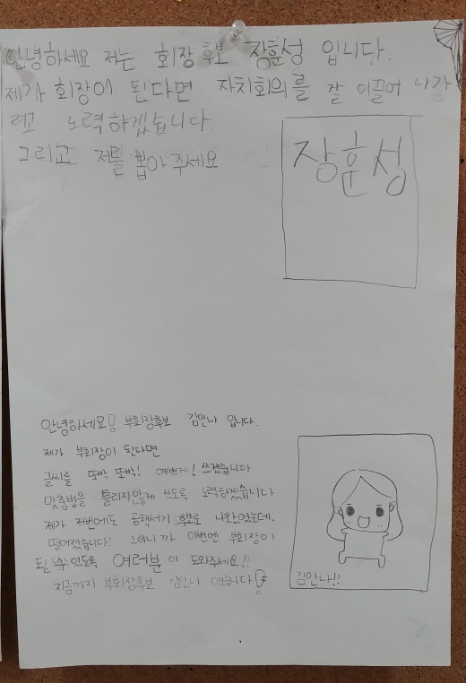 안녕하세요 저는 회장 후보 장훈성 입니다.
제가 회장이 된다면 자치회의를 잘 이끌어 나갈
려고 노력하겠습니다.
그리고 저를 뽑아주세요
장훈성
안녕하세요! 부회장후보 김안나 입니다.
제가 부회장이 된다면
글씨를 또박 또박! 예쁘게! 쓰겠습니다
맞춤법을 틀리지않게 쓰도록 노력하겠습니다
제가 저번에도 공책서기 후보로 나왔었는데,
떨어졌습니다! 그러니까 이번엔 부회장이
될 수 있도록 여러분이 도와주세요!!
지금까지 부회장후보 김안나 였습니다
김안나!!